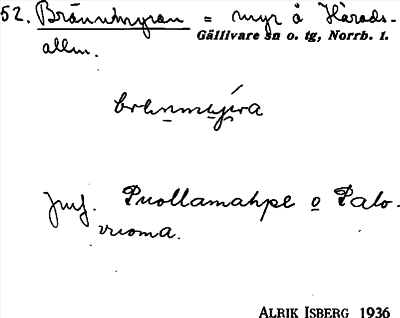 52. Brännmyran = myr å Härads-
Gällivare sn o. tg, Norrb. l.
allm.
brenmyira
Jmf. Puollamahpe o Palo-
vuoma.
ALRIK ISBERG 1936